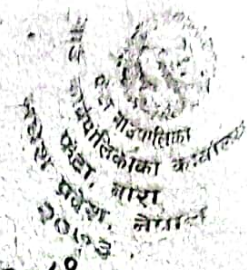 गाउँपालिका
गाउँ कार्यपालिकाको कार्यालय
फेटा, बारा
मधेश प्रदेश, नेपाल
२०७३